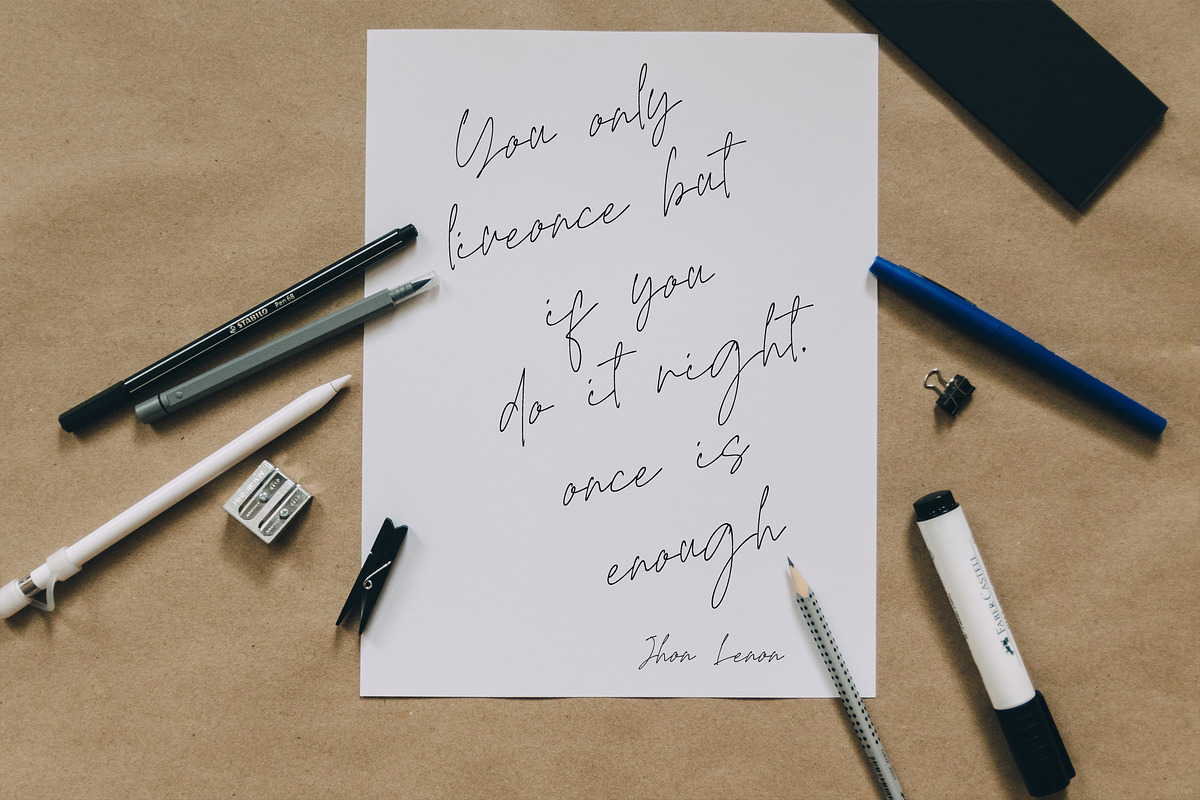 You only
liveonce but
if you
do it right.
once is
enough
Jhon Lenon
STABILO Pen 68
FABER CASTELL